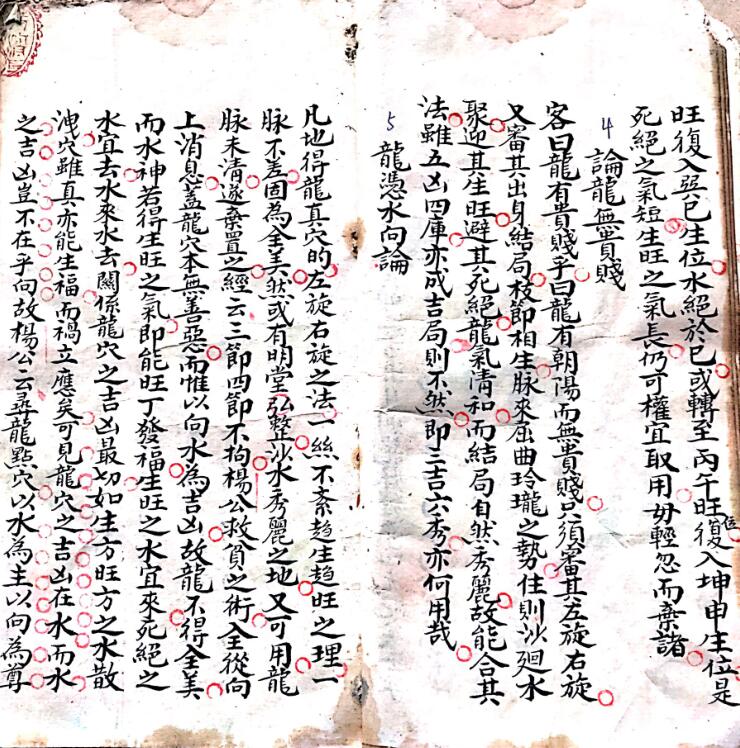 旺復入巽巳生位水絕於巳或轉至丙午旺位復入坤申生位是
死絕之氣短生旺之氣長仍可權宜取用毋輕忽而棄諸
4 論龍無貴賤
客曰龍有貴賤乎曰龍有朝陽而無貴賤只須審其左旋右旋
又審其出身結局枝節相生脉來屈曲玲瓏之勢住則沙廻水
聚迎其生旺避其死絕龍氣清和而結局自然秀麗故能合其
法雖五凶四庫亦成吉局則不然即三吉六秀亦何用哉
5 龍憑水向論
凡地得龍真穴的左旋右旋之法一絲不紊趋生趋旺之理一
脉不差因為全美然或有明堂弘整沙水秀麗之地又可用龍
脉未清遂棄置之經云三節四節不拘楊公救貧之術全從向
上消息蓋龍穴本無善惡而惟以向水為吉凶故龍不得全美
而水神若得生旺之氣即能旺丁發福生旺之水宜來死絕之
水宜去水來水去關係龍穴之吉凶最切如生方旺方之水散
洩穴雖真亦能生福而禍立應矣可見龍穴之吉凶在水而水
之吉凶豈不在乎向故楊公云尋龍點穴以水為主以向為尊